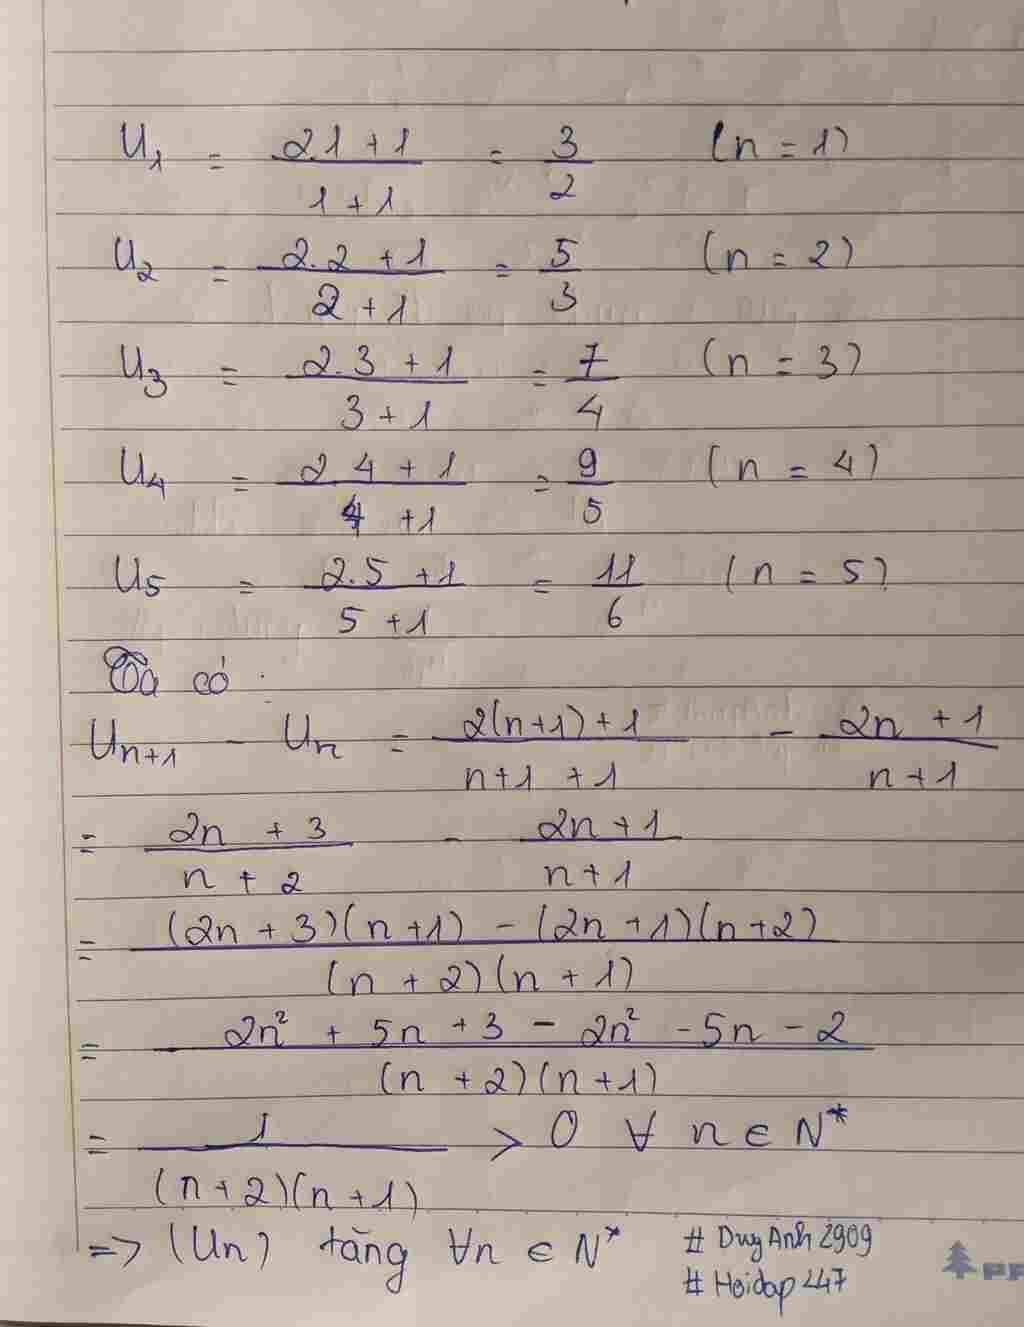 U₁ = (2.1 + 1)/(1 + 1) = 3/2 (n = 1)
U₂ = (2.2 + 1)/(2 + 1) = 5/3 (n = 2)
U₃ = (2.3 + 1)/(3 + 1) = 7/4 (n = 3)
U₄ = (2.4 + 1)/(4 + 1) = 9/5 (n = 4)
U₅ = (2.5 + 1)/(5 + 1) = 11/6 (n = 5)
Ta có :
Uₙ₊₁ - Uₙ = (2(n+1) + 1)/(n+1 + 1) - (2n + 1)/(n + 1)
= (2n + 3)/(n + 2) - (2n + 1)/(n + 1)
= ((2n + 3)(n + 1) - (2n + 1)(n + 2))/((n + 2)(n + 1))
= (2n² + 5n + 3 - 2n² - 5n - 2)/((n + 2)(n + 1))
= 1/((n + 2)(n + 1)) > 0 ∀ n ∈ N*
=> (Un) tăng ∀n ∈ N*
# DuyAnh2909
# Hoidap247